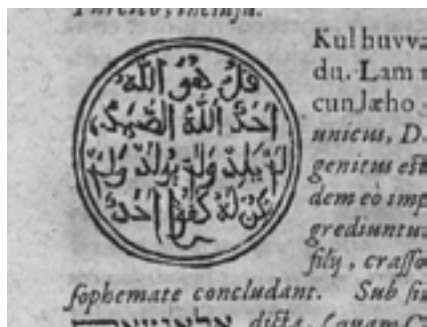 Turcico, inclusa.
قل هو الله
احد الله الصمد
لم يلد ولم يولد ولم
يكن له كفوا احد
Kul huvva
du. Lam
cunJæho
unicus, D.
genitus est
dem eò imp
grediuntu
filij, crasso
sophemate concludant. Sub
dicta, (quam C